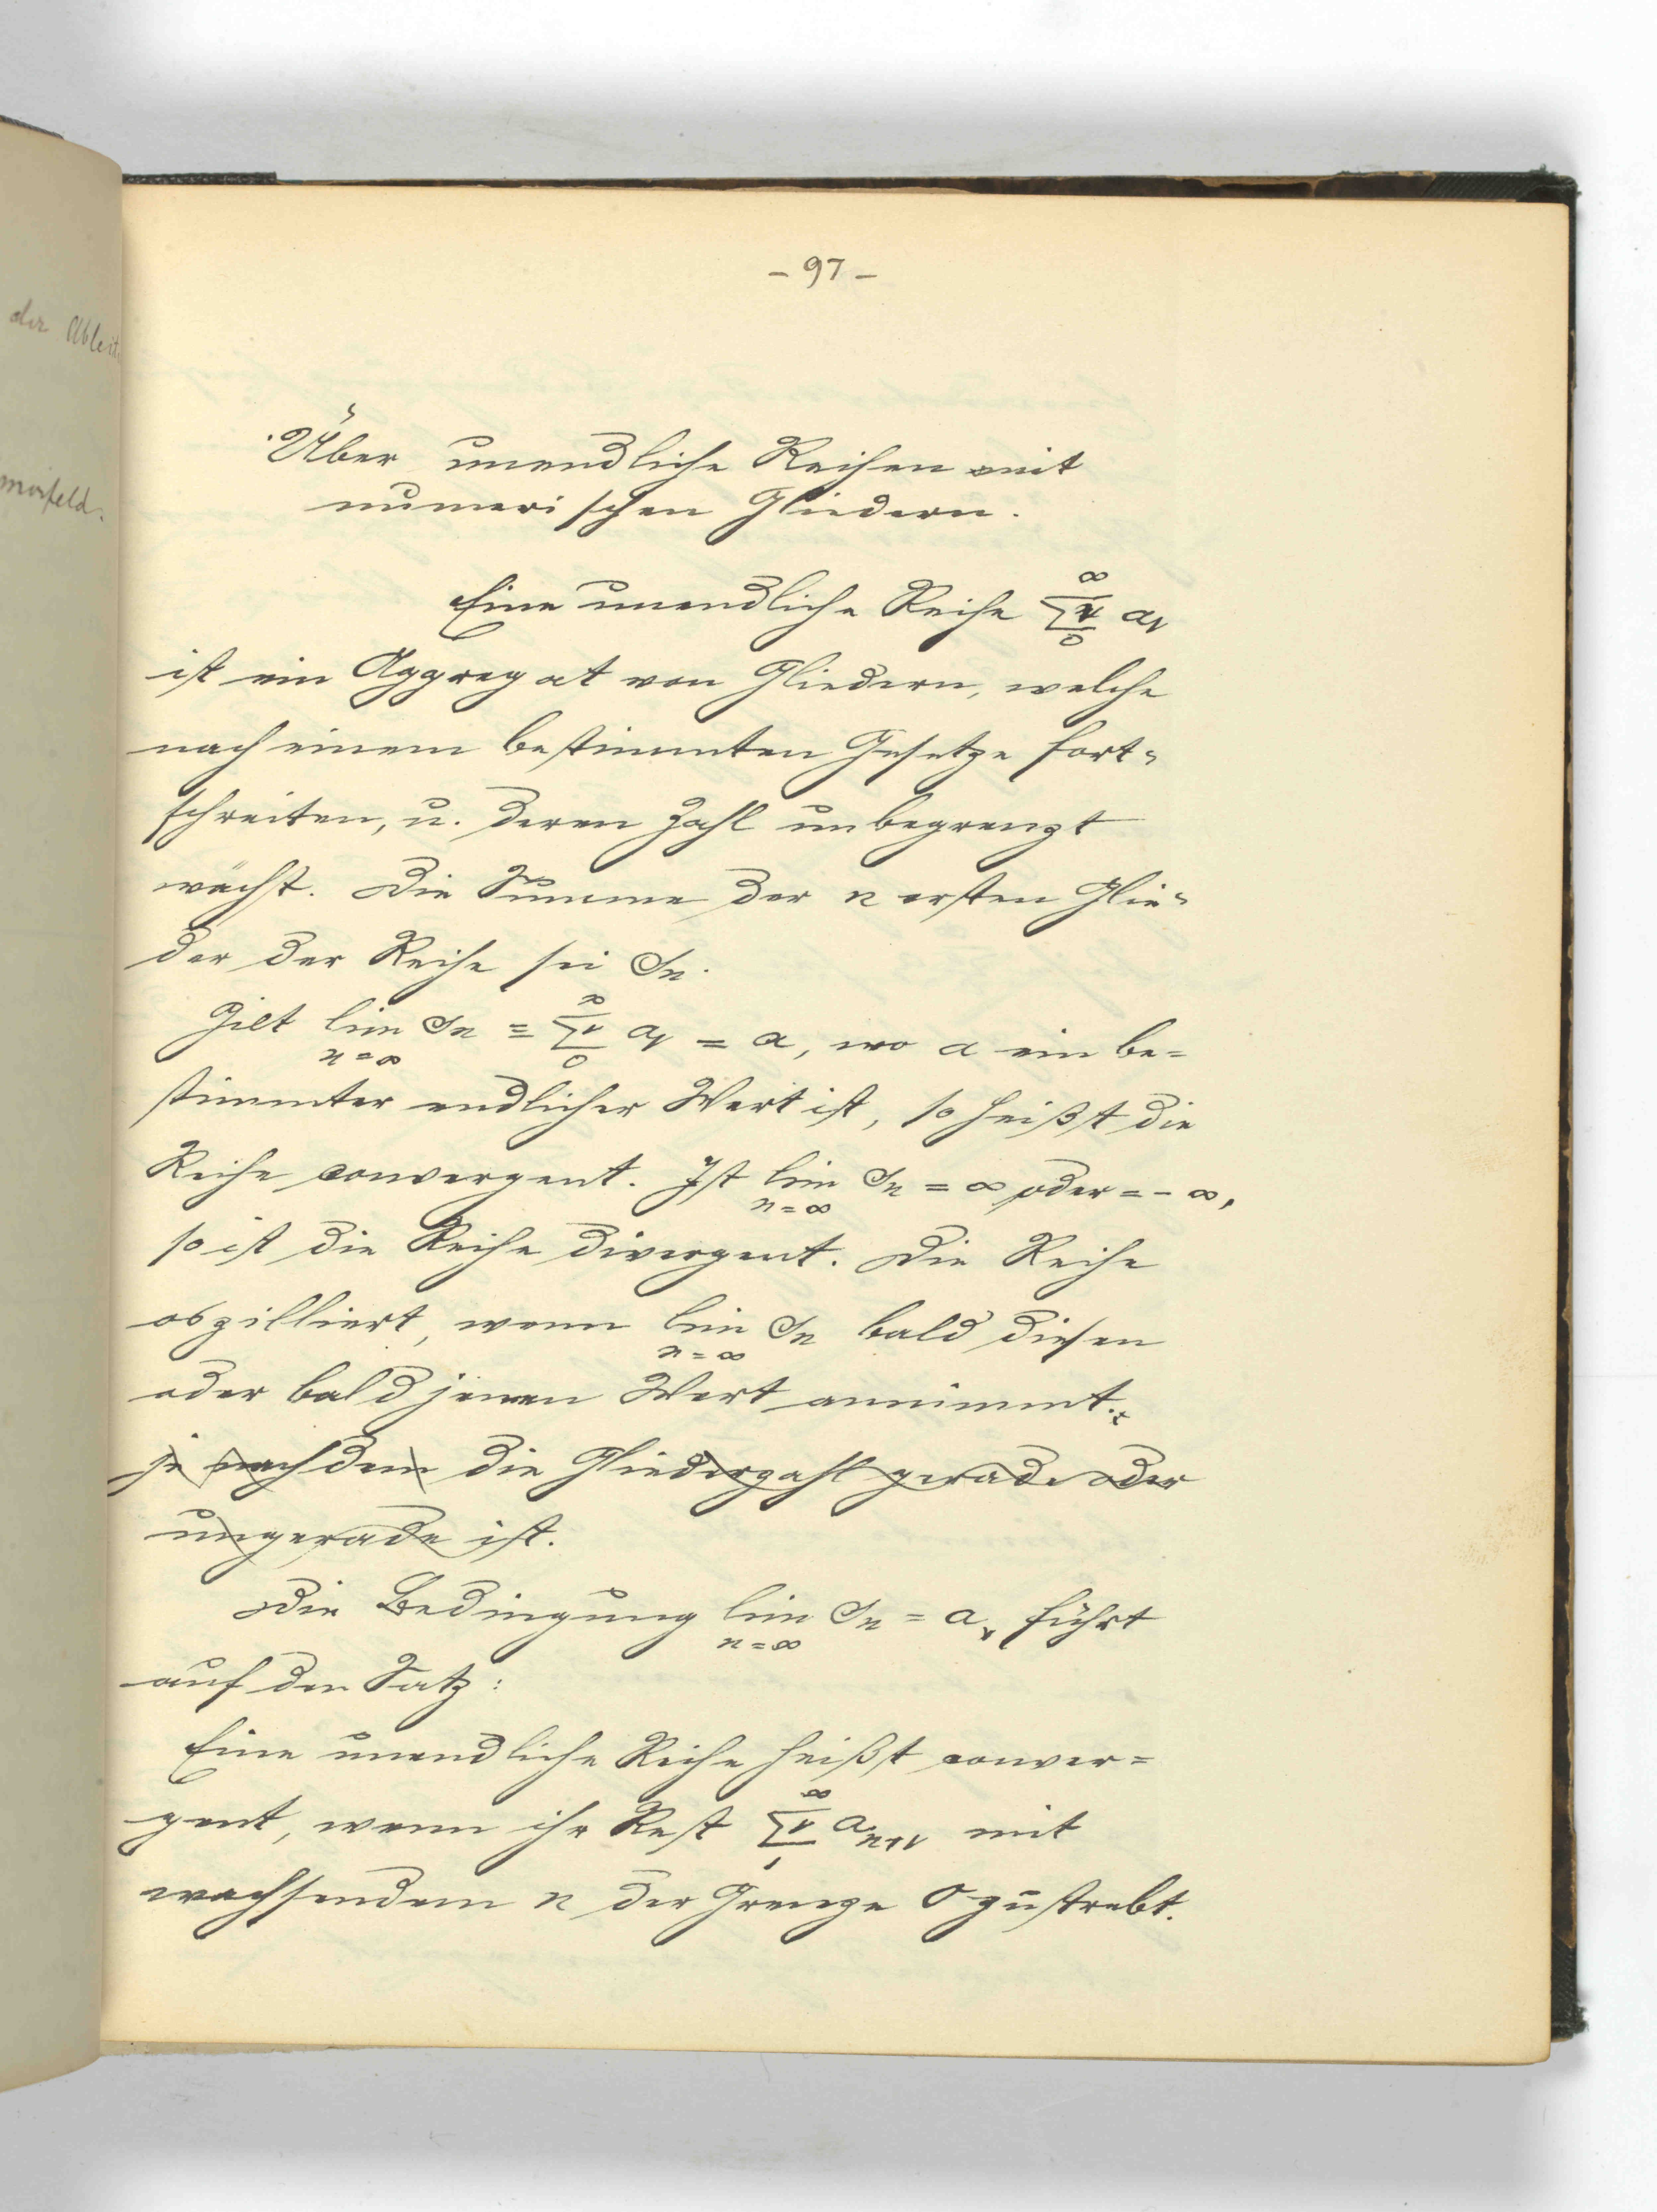 der Ableit
merfeld.
– 97 –
Über unendliche Reihen mit
numerischen Gliedern.
Eine unendliche Reihe ∞ Σν 0 aν
ist ein Aggregat von Gliedern, welche
nach einem bestimmten Gesetze fort=
schreiten, u. deren Zahl unbegrenzt
wächst. Die Summe der n ersten Glie=
der der Reihe sei Sn.
Gilt lim n=∞ Sn = ∞ Σν 0 aν = a, wo a ein be=
stimmter endlicher Wert ist, so heißt die
Reihe convergent. Ist lim n=∞ Sn = ∞ oder = – ∞,
so ist die Reihe divergent. Die Reihe
oszilliert, wenn lim n=∞ Sn bald diesen
oder bald jenen Wert annimmt.
je nachdem die Gliederzahl gerade oder
ungerade ist.
Die Bedingung lim n=∞ Sn = a, führt
auf den Satz:
Eine unendliche Reihe heißt conver=
gent, wenn ihr Rest ∞ Σν 1 an+ν mit
wachsendem n der Grenze 0 zustrebt.